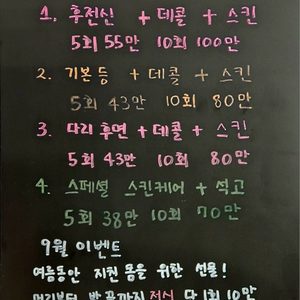 1. 후전신 + 데콜 + 스킨
5회 55만 10회 100만
2. 기본등 + 데콜 + 스킨
5회 43만 10회 80만
3. 다리후면 + 데콜 + 스킨
5회 43만 10회 80만
4. 스페셜 스킨케어 + 석고
5회 38만 10회 70만
9월 이벤트
여름동안 지친 몸을 위한 선물!
머리부터 발끝까지 전신 단 1회 10만